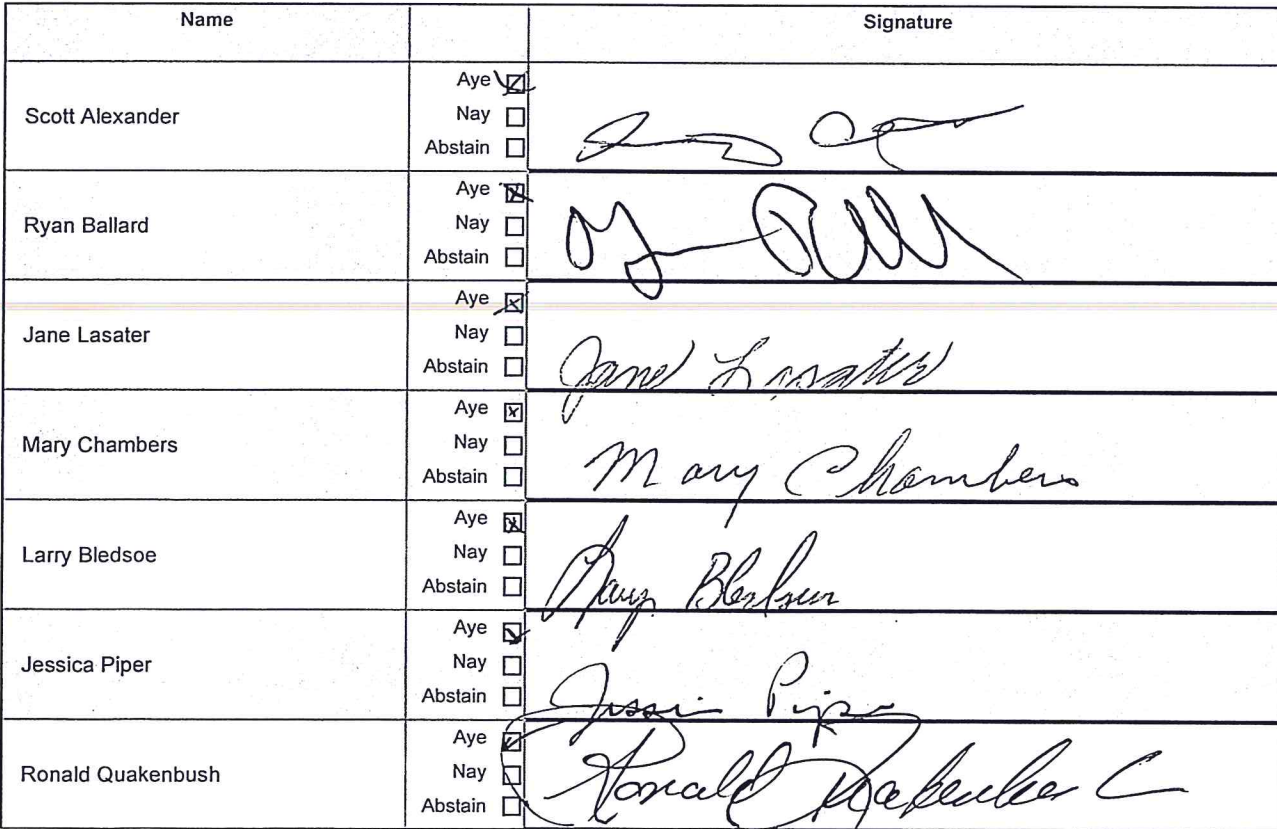 Name Signature
Aye ☒
Scott Alexander
Nay ☐
Abstain ☐
Aye ☒
Ryan Ballard
Nay ☐
Abstain ☐
Aye ☒
Jane Lasater
Nay ☐
Abstain ☐
Jane Lasater
Aye ☒
Mary Chambers
Nay ☐
Abstain ☐
Mary Chambers
Aye ☒
Larry Bledsoe
Nay ☐
Abstain ☐
Larry Bledsoe
Aye ☒
Jessica Piper
Nay ☐
Abstain ☐
Jessica Piper
Aye ☒
Ronald Quakenbush
Nay ☐
Abstain ☐
Ronald Quakenbush